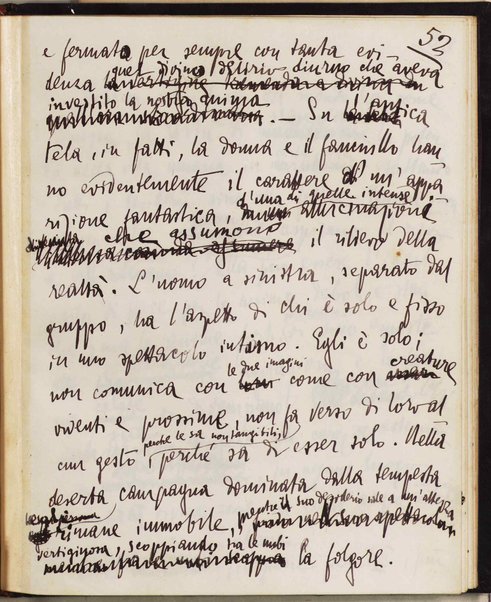 52
e fermato per sempre con tanta evi-
denza quel divino delirio diurno che aveva
investito la nostra anima. — Su l'antica
tela, in fatti, la donna e il fanciullo han-
no evidentemente il carattere d'un'appa-
rizione fantastica, d'una di quelle intense allucinazioni
che assumono il rilievo della
realtà. L'uomo a sinistra, separato dal
gruppo, ha l'aspetto di chi è solo e fisso
in uno spettacolo intimo. Egli è solo;
non comunica con le due imagini come con creature
viventi e prossime, non fa verso di loro al-
cun gesto, perché le sa non tangibili, perché sa di esser solo. Nella
deserta campagna dominata dalla tempesta
rimane immobile, perché il suo desiderio sale a un'altezza
vertiginosa, scoppiando tra le nubi la folgore.